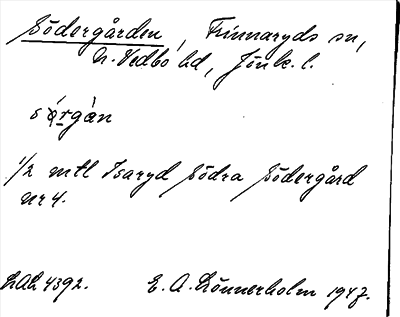 Södergården, Frinnaryds sn,
N. Vedbo hd, Jönk. l.
sǿrgàn
1/2 mtl Isaryd Södra Södergård
nr 4.
LAL 4392. E. A. Lönnerholm 1947.